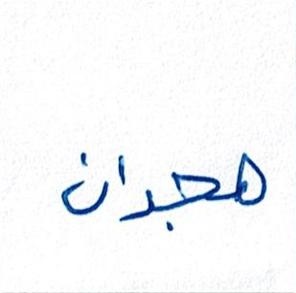 هجدان